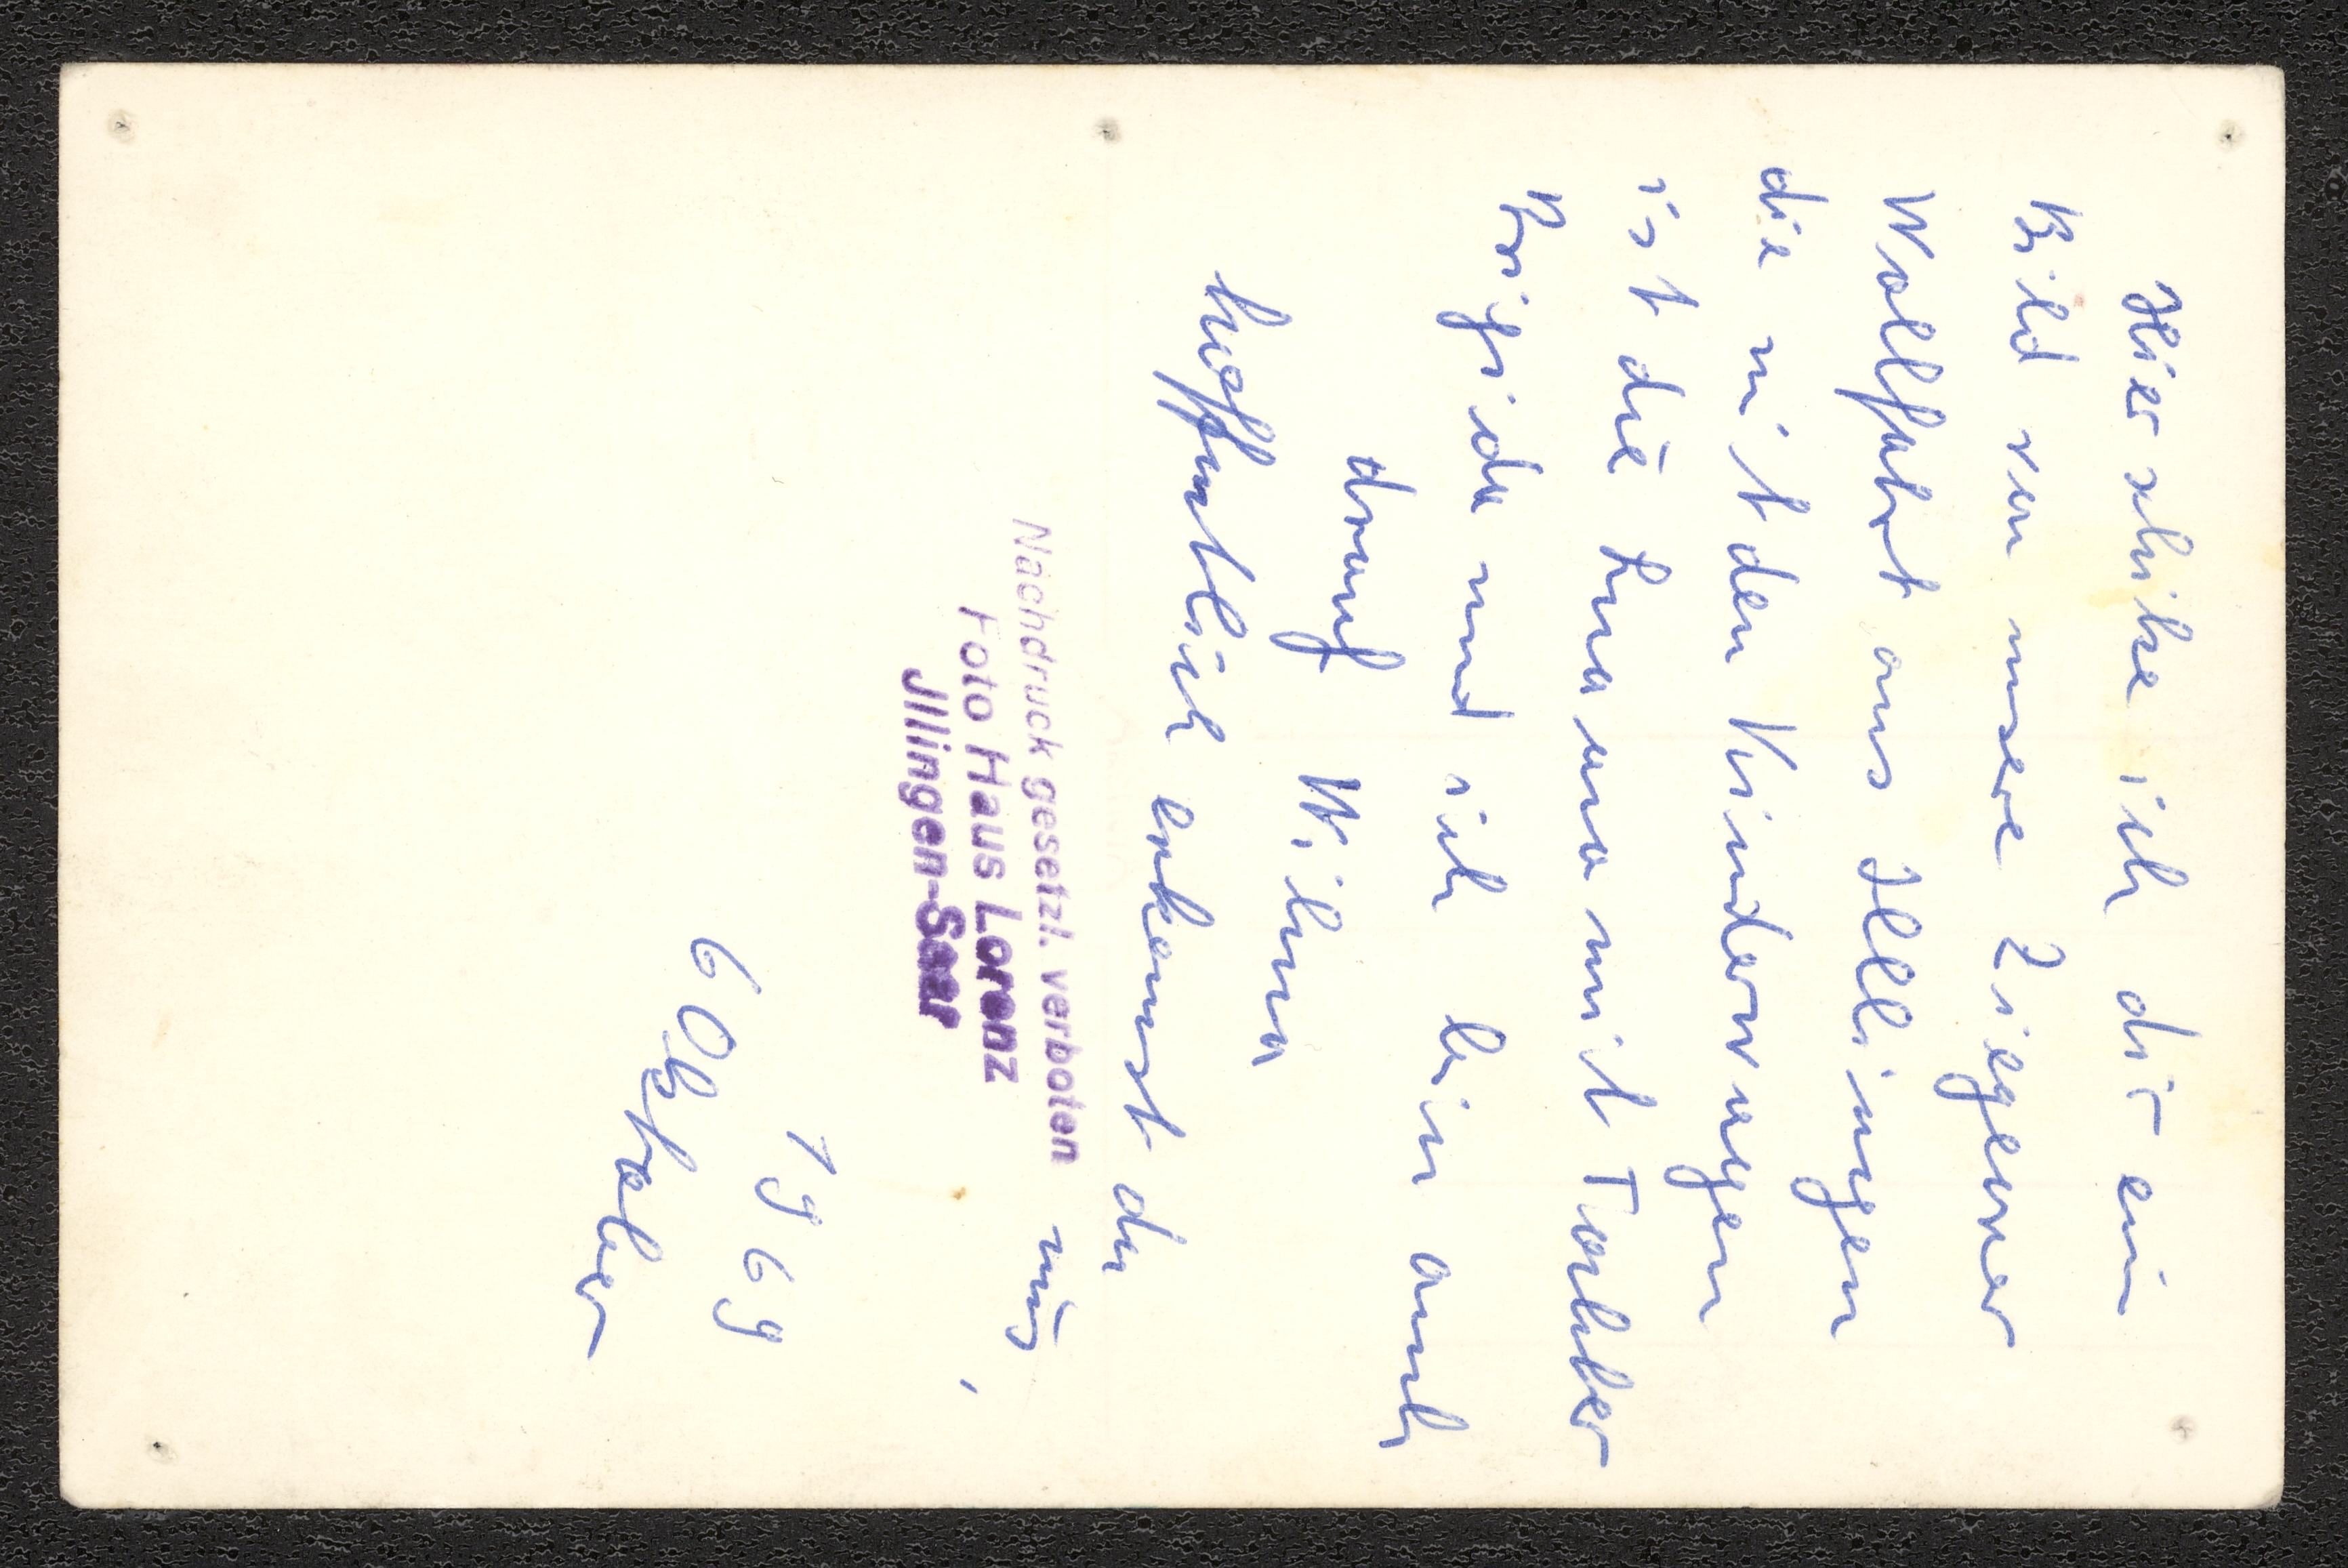 Hier schike ich dir ein
Bild von unsere Ziegeuner
Wollfahrt aus Illingen
die mit den Kinderwagen
ist die Limama mit Tochter
Brigida und ich bin auch
drauf Wilma
hoffentlich erkenst du
mig,
Nachdruck gesetzl. verboten
Foto Haus Lorenz
Jllingen-Saar
1969
6 Oktober